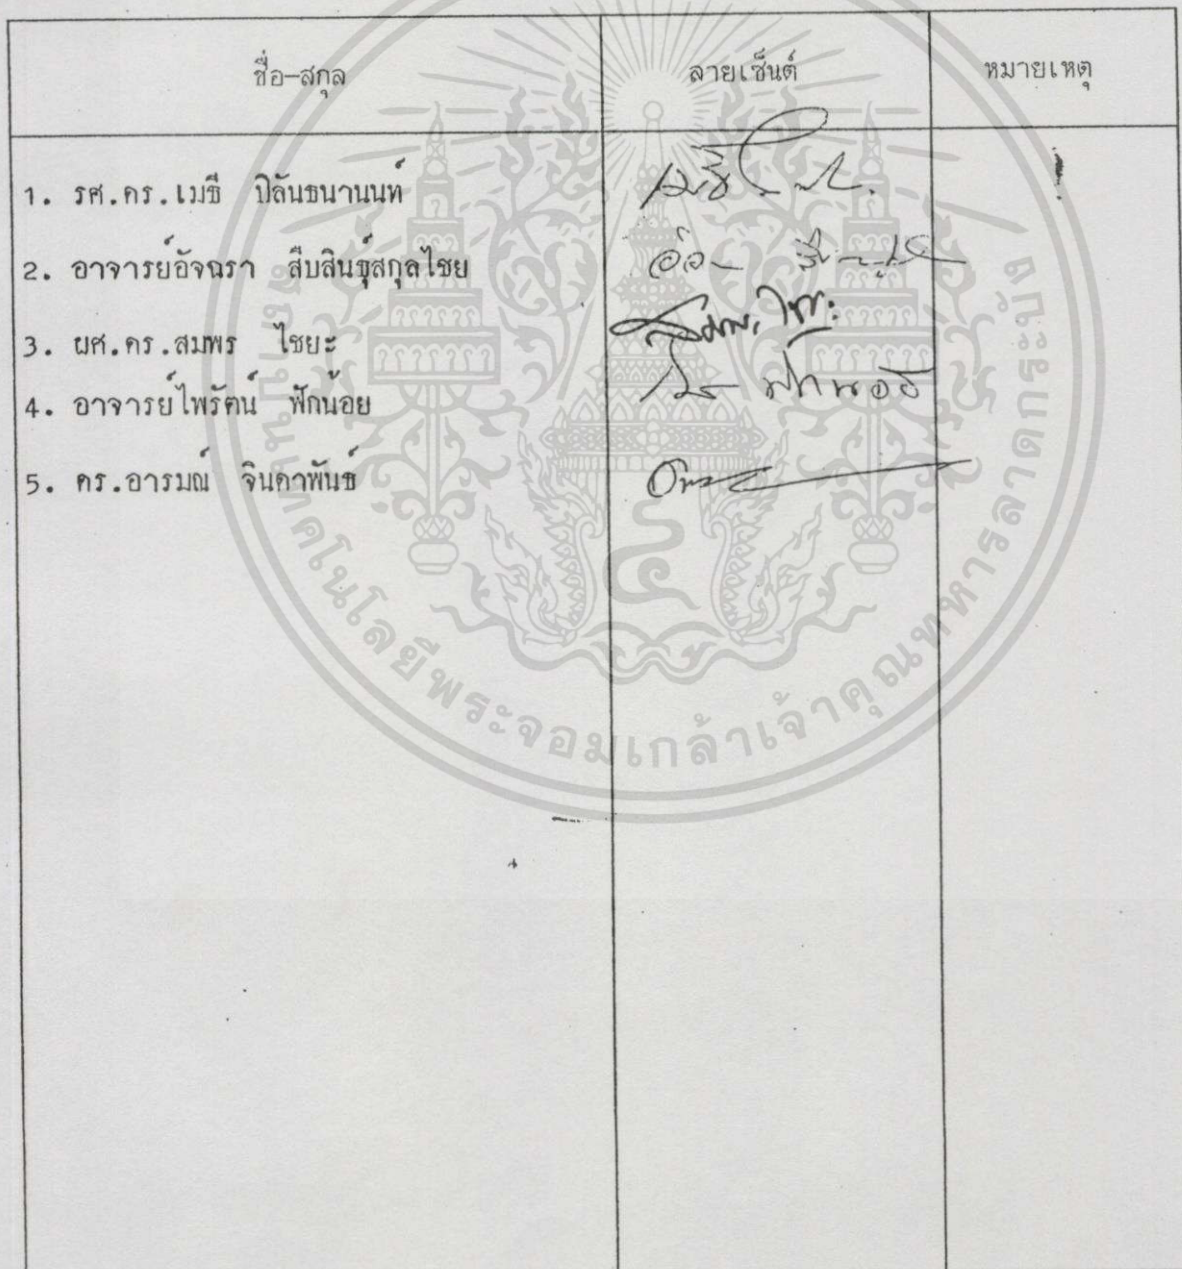 ชื่อ-สกุล ลายเซ็นต์ หมายเหตุ
1. รศ.ดร.เมธี ปิลันธนานนท์
2. อาจารย์อัจฉรา สืบสินธุ์สกุลไชย
3. ผศ.ดร.สมพร ไชยะ
4. อาจารย์ไพรัตน์ ฟักน้อย
5. ดร.อารมณ์ จินดาพันธ์
สถาบันเทคโนโลยีพระจอมเกล้าเจ้าคุณทหารลาดกระบัง